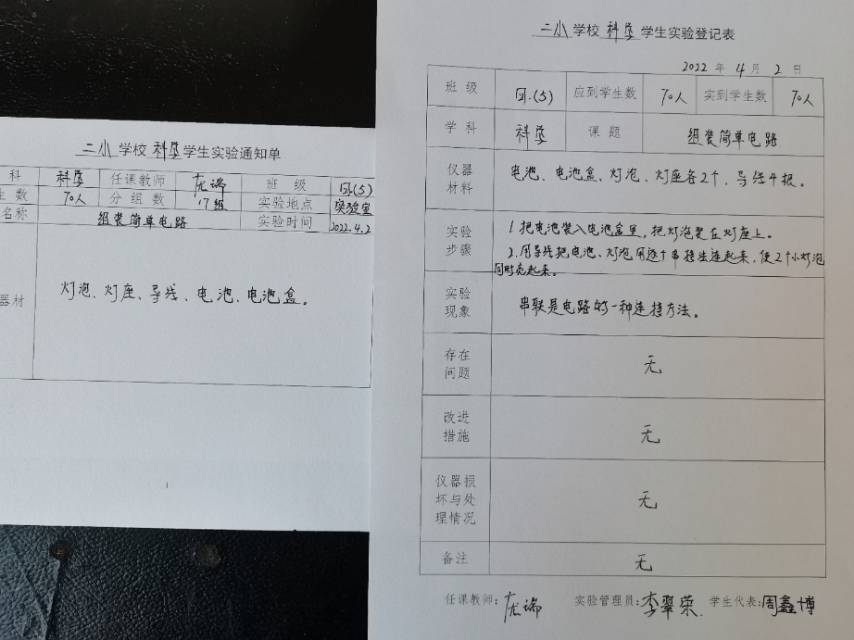 二小学校科学学生实验通知单
科 科学 任课教师 尤瑞 班级 四(5)
生数 70人 分组数 17组 实验地点 实验室
名称 组装简单电路 实验时间 2022.4.2
器材 灯泡、灯座、导线、电池、电池盒。
二小学校科学学生实验登记表
2022年4月2日
班级 四.(5) 应到学生数 70人 实到学生数 70人
学科 科学 课题 组装简单电路
仪器材料 电池、电池盒、灯泡、灯座各2个、导线4根。
实验步骤 1.把电池装入电池盒里,把灯泡装在灯座上。
2.用导线把电池、灯泡用逐个串接生连起来,使2个小灯泡
同时亮起来。
实验现象 串联是电路的一种连接方法。
存在问题 无
改进措施 无
仪器损坏与处理情况 无
备注 无
任课教师:尤瑞 实验管理员:李翠荣 学生代表:周鑫博